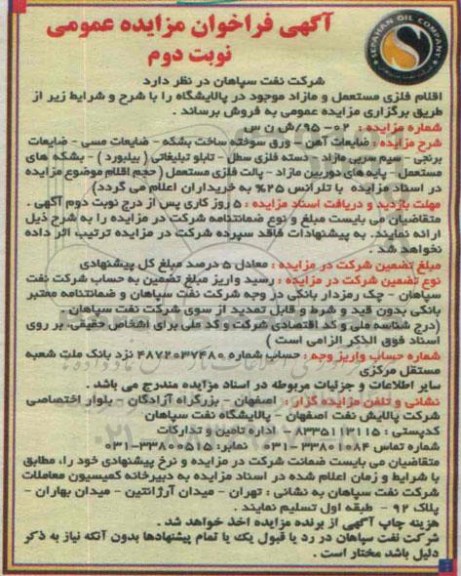 SEPAHAN OIL COMPANY
آگهی فراخوان مزایده عمومی
نوبت دوم
شرکت نفت سپاهان در نظر دارد
اقلام فلزی مستعمل و مازاد موجود در پالایشگاه را با شرح و شرایط زیر از
طریق برگزاری مزایده عمومی به فروش برساند .
شماره مزایده : ۰۲-۹۵/ش ن س
شرح مزایده : ضایعات آهن - ورق سوخته ساخت بشکه - ضایعات مسی - ضایعات
برنجی - سیم سربی مازاد - دسته فلزی سطل - تابلو تبلیغاتی ( بیلبورد ) - بشکه های
مستعمل - پایه های دوربین مازاد - پالت فلزی مستعمل ( حجم اقلام موضوع مزایده
در اسناد مزایده با تلرانس ۲۵% به خریداران اعلام می گردد)
مهلت بازدید و دریافت اسناد مزایده : ۵ روز کاری پس از درج نوبت دوم آگهی .
متقاضیان می بایست مبلغ و نوع ضمانتنامه شرکت در مزایده را به شرح ذیل
ارائه نمایند. به پیشنهادات فاقد سپرده شرکت در مزایده ترتیب اثر داده
نخواهد شد .
مبلغ تضمین شرکت در مزایده : معادل ۵ درصد مبلغ کل پیشنهادی
نوع تضمین شرکت در مزایده : رسید واریز مبلغ تضمین به حساب شرکت نفت
سپاهان - چک رمزدار بانکی در وجه شرکت نفت سپاهان و ضمانتنامه معتبر
بانکی بدون قید و شرط و قابل تمدید از سوی شرکت نفت سپاهان
(درج شناسه ملی و کد اقتصادی شرکت و کد ملی برای اشخاص حقیقی، بر روی
اسناد فوق الذکر الزامی است )
شماره حساب واریز وجه : حساب شماره ۴۸۷۲۰۳۷۴۸۰ نزد بانک ملت شعبه
مستقل مرکزی
سایر اطلاعات و جزئیات مربوطه در اسناد مزایده مندرج می باشد .
نشانی و تلفن مزایده گزار : اصفهان - بزرگراه آزادگان - بلوار اختصاصی
شرکت پالایش نفت اصفهان - پالایشگاه نفت سپاهان
کدپستی : ۸۳۳۵۱۱۳۱۱۵ - اداره تامین و تدارکات
شماره تماس ۳۳۸۰۱۰۸۴ -۰۳۱ نمابر: ۳۳۸۰۰۵۱۵-۰۳۱
متقاضیان می بایست ضمانت شرکت در مزایده و نرخ پیشنهادی خود را، مطابق
با شرایط و زمان اعلام شده در اسناد مزایده به دبیرخانه کمیسیون معاملات
شرکت نفت سپاهان به نشانی : تهران - میدان آرژانتین - میدان بهاران -
پلاک ۹۲ - طبقه اول تسلیم نمایند .
هزینه چاپ آگهی از برنده مزایده اخذ خواهد شد .
شرکت نفت سپاهان در رد یا قبول یک یا تمام پیشنهادها بدون آنکه نیاز به ذکر
دلیل باشد مختار است .